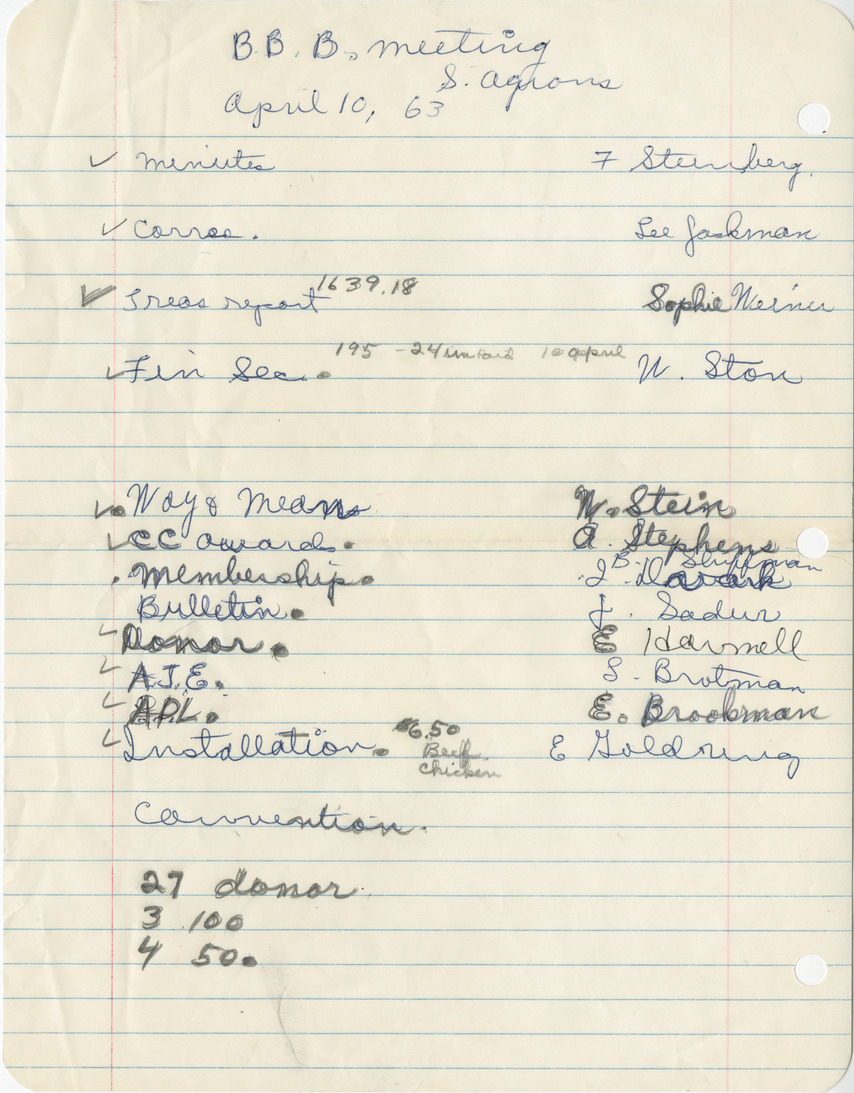 B.B.B. meeting
S. Agrons
April 10, 63
✓ minutes 7 Steinberg.
✓ Corres. Lee Jackman
✓ Treas report 1639.18 Sophie Weiner
✓ Fin Sec. 195 - 24 unpaid 10 april W. Ston
✓ Way & Means W. Stein
✓ CC awards. A. Stephens
. Membership. B. Shiffman
Bulletin. J. Sadur
✓ Donor. E Harmell
✓ A.J.E. S. Brotman
✓ ADL. E. Brookman
✓ Installation. 6.50 E Goldring
Beef
Chicken
Convention.
27 donor
3 100
4 50.